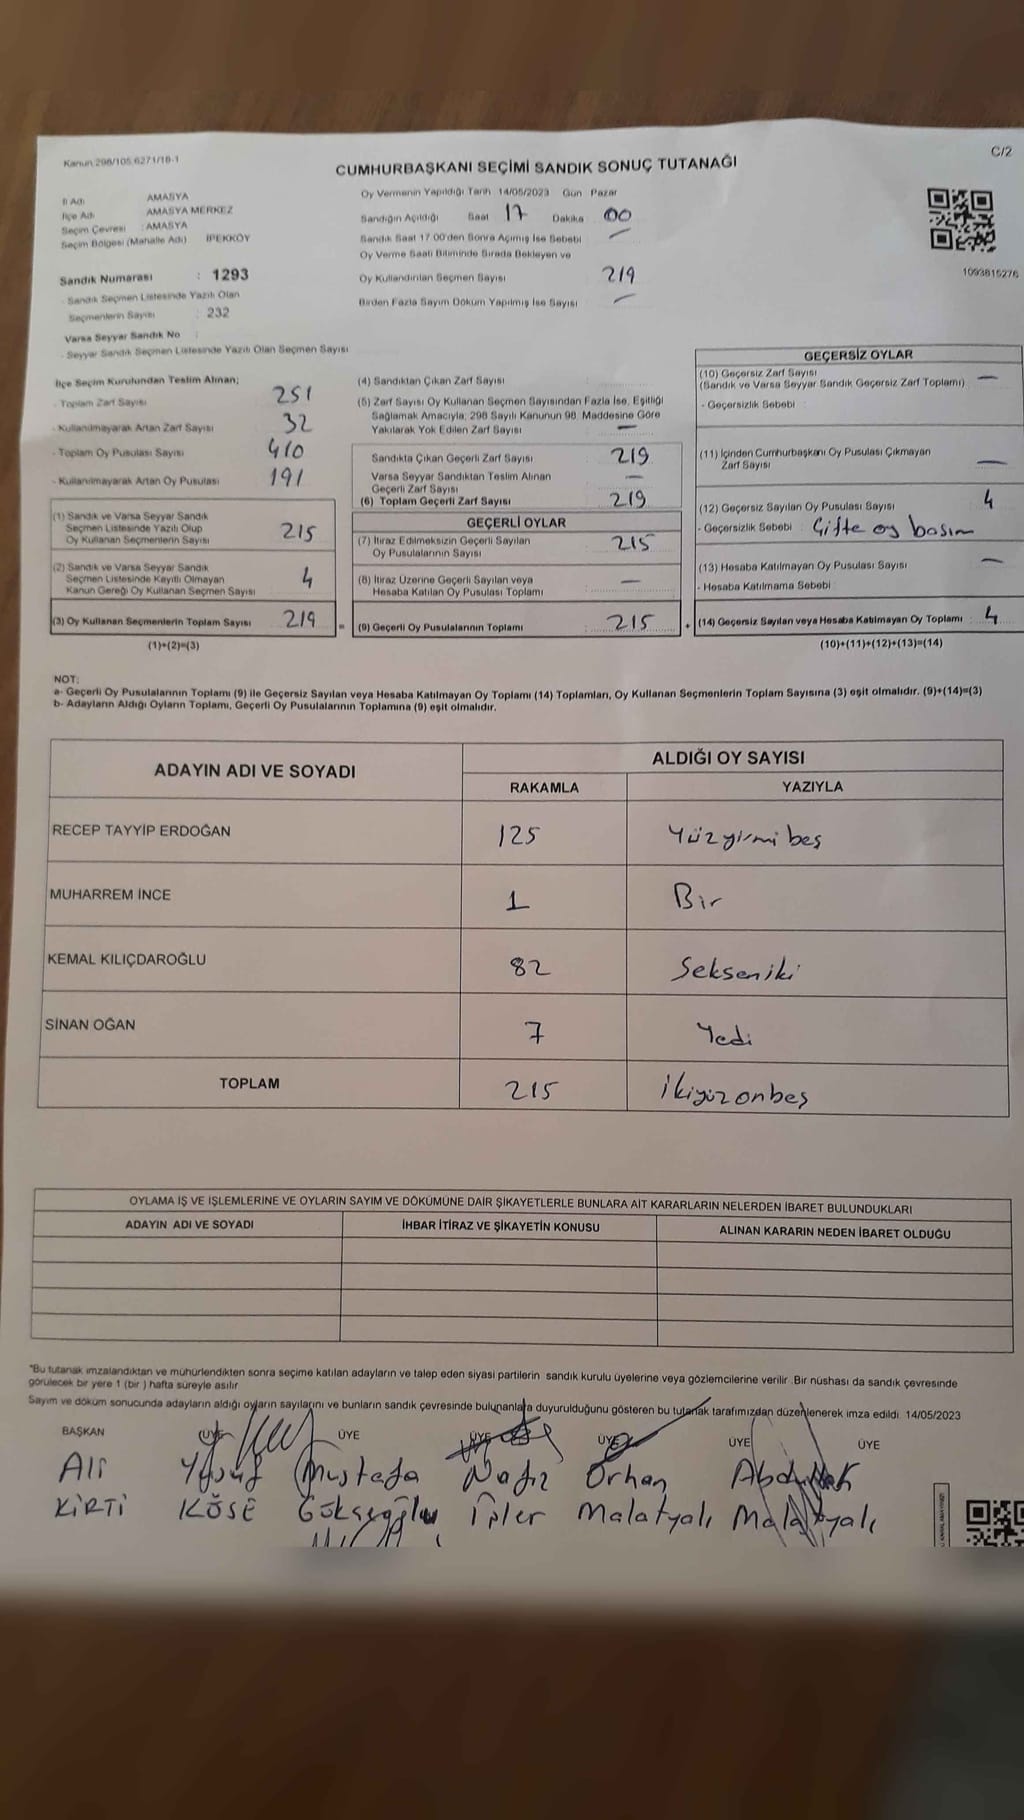 Kanun 298/105,6271/18-1
C/2
CUMHURBAŞKANI SEÇİMİ SANDIK SONUÇ TUTANAĞI
İl Adı AMASYA
İlçe Adı AMASYA MERKEZ
Seçim Çevresi : AMASYA
Seçim Bölgesi (Mahalle Adı) İPEKKÖY
Sandık Numarası : 1293
- Sandık Seçmen Listesinde Yazılı Olan
Seçmenlerin Sayısı : 232
Varsa Seyyar Sandık No :
- Seyyar Sandık Seçmen Listesinde Yazılı Olan Seçmen Sayısı
Oy Vermenin Yapıldığı Tarih 14/05/2023 Gün Pazar
Sandığın Açıldığı Saat 17 Dakika 00
Sandık Saat 17.00'den Sonra Açımış İse Sebebi —
Oy Verme Saati Bitiminde Sırada Bekleyen ve
Oy Kullandırılan Seçmen Sayısı 219
Birden Fazla Sayım Döküm Yapılmış İse Sayısı —
1093815276
İlçe Seçim Kurulundan Teslim Alınan;
- Toplam Zarf Sayısı 251
- Kullanılmayarak Artan Zarf Sayısı 32
- Toplam Oy Pusulası Sayısı 410
- Kullanılmayarak Artan Oy Pusulası 191
(1) Sandık ve Varsa Seyyar Sandık
Seçmen Listesinde Yazılı Olup
Oy Kullanan Seçmenlerin Sayısı 215
(2) Sandık ve Varsa Seyyar Sandık
Seçmen Listesinde Kayıtlı Olmayan
Kanun Gereği Oy Kullanan Seçmen Sayısı 4
(3) Oy Kullanan Seçmenlerin Toplam Sayısı 219 =
(1)+(2)=(3)
(4) Sandıktan Çıkan Zarf Sayısı :
(5) Zarf Sayısı Oy Kullanan Seçmen Sayısından Fazla İse, Eşitliği
Sağlamak Amacıyla; 298 Sayılı Kanunun 98. Maddesine Göre
Yakılarak Yok Edilen Zarf Sayısı : —
Sandıkta Çıkan Geçerli Zarf Sayısı : 219
Varsa Seyyar Sandıktan Teslim Alınan
Geçerli Zarf Sayısı —
(6) Toplam Geçerli Zarf Sayısı : 219
GEÇERLİ OYLAR
(7) İtiraz Edilmeksizin Geçerli Sayılan
Oy Pusulalarının Sayısı : 215
(8) İtiraz Üzerine Geçerli Sayılan veya
Hesaba Katılan Oy Pusulası Toplamı : —
(9) Geçerli Oy Pusulalarının Toplamı : 215 +
GEÇERSİZ OYLAR
(10) Geçersiz Zarf Sayısı —
(Sandık ve Varsa Seyyar Sandık Geçersiz Zarf Toplamı)
- Geçersizlik Sebebi :
(11) İçinden Cumhurbaşkanı Oy Pusulası Çıkmayan
Zarf Sayısı —
(12) Geçersiz Sayılan Oy Pusulası Sayısı 4
- Geçersizlik Sebebi : Çifte oy basım
(13) Hesaba Katılmayan Oy Pusulası Sayısı —
- Hesaba Katılmama Sebebi :
(14) Geçersiz Sayılan veya Hesaba Katılmayan Oy Toplamı : 4
(10)+(11)+(12)+(13)=(14)
NOT:
a- Geçerli Oy Pusulalarının Toplamı (9) ile Geçersiz Sayılan veya Hesaba Katılmayan Oy Toplamı (14) Toplamları, Oy Kullanan Seçmenlerin Toplam Sayısına (3) eşit olmalıdır. (9)+(14)=(3)
b- Adayların Aldığı Oyların Toplamı, Geçerli Oy Pusulalarının Toplamına (9) eşit olmalıdır.
ADAYIN ADI VE SOYADI ALDIĞI OY SAYISI
RAKAMLA YAZIYLA
RECEP TAYYİP ERDOĞAN 125 Yüzyirmi beş
MUHARREM İNCE 1 Bir
KEMAL KILIÇDAROĞLU 82 Sekseniki
SİNAN OĞAN 7 Yedi
TOPLAM 215 İkiyüzonbeş
OYLAMA İŞ VE İŞLEMLERİNE VE OYLARIN SAYIM VE DÖKÜMÜNE DAİR ŞİKAYETLERLE BUNLARA AİT KARARLARIN NELERDEN İBARET BULUNDUKLARI
ADAYIN ADI VE SOYADI İHBAR İTİRAZ VE ŞİKAYETİN KONUSU ALINAN KARARIN NEDEN İBARET OLDUĞU
*Bu tutanak imzalandıktan ve mühürlendikten sonra seçime katılan adayların ve talep eden siyasi partilerin sandık kurulu üyelerine veya gözlemcilerine verilir. Bir nüshası da sandık çevresinde
görülecek bir yere 1 (bir ) hafta süreyle asılır
Sayım ve döküm sonucunda adayların aldığı oyların sayılarını ve bunların sandık çevresinde bulunanlara duyurulduğunu gösteren bu tutanak tarafımızdan düzenlenerek imza edildi. 14/05/2023
BAŞKAN ÜYE ÜYE ÜYE ÜYE ÜYE ÜYE
Ali Yusuf Mustafa Nafiz Orhan Abdullah
KİRTİ KÖSE Malatyalı Malatyalı